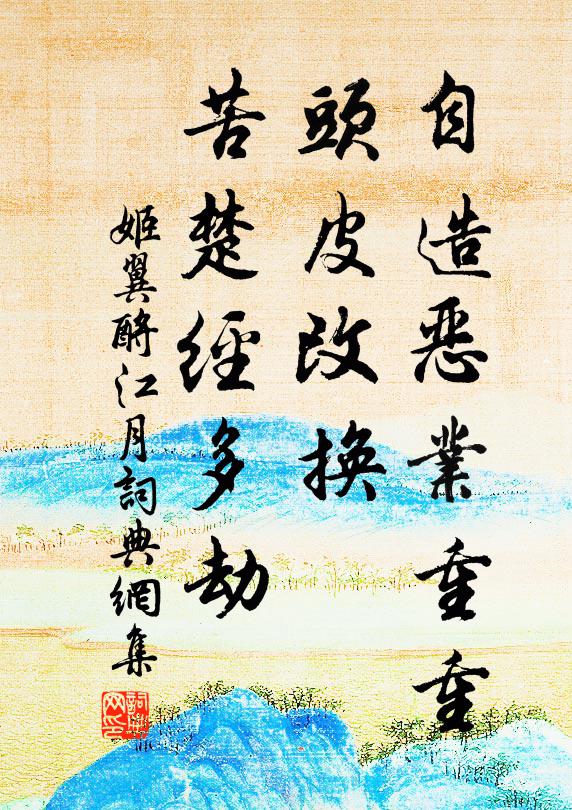 自造惡業重重
頭皮改換
苦楚經多劫
姬翼酹江月詞典網集
詞典網印